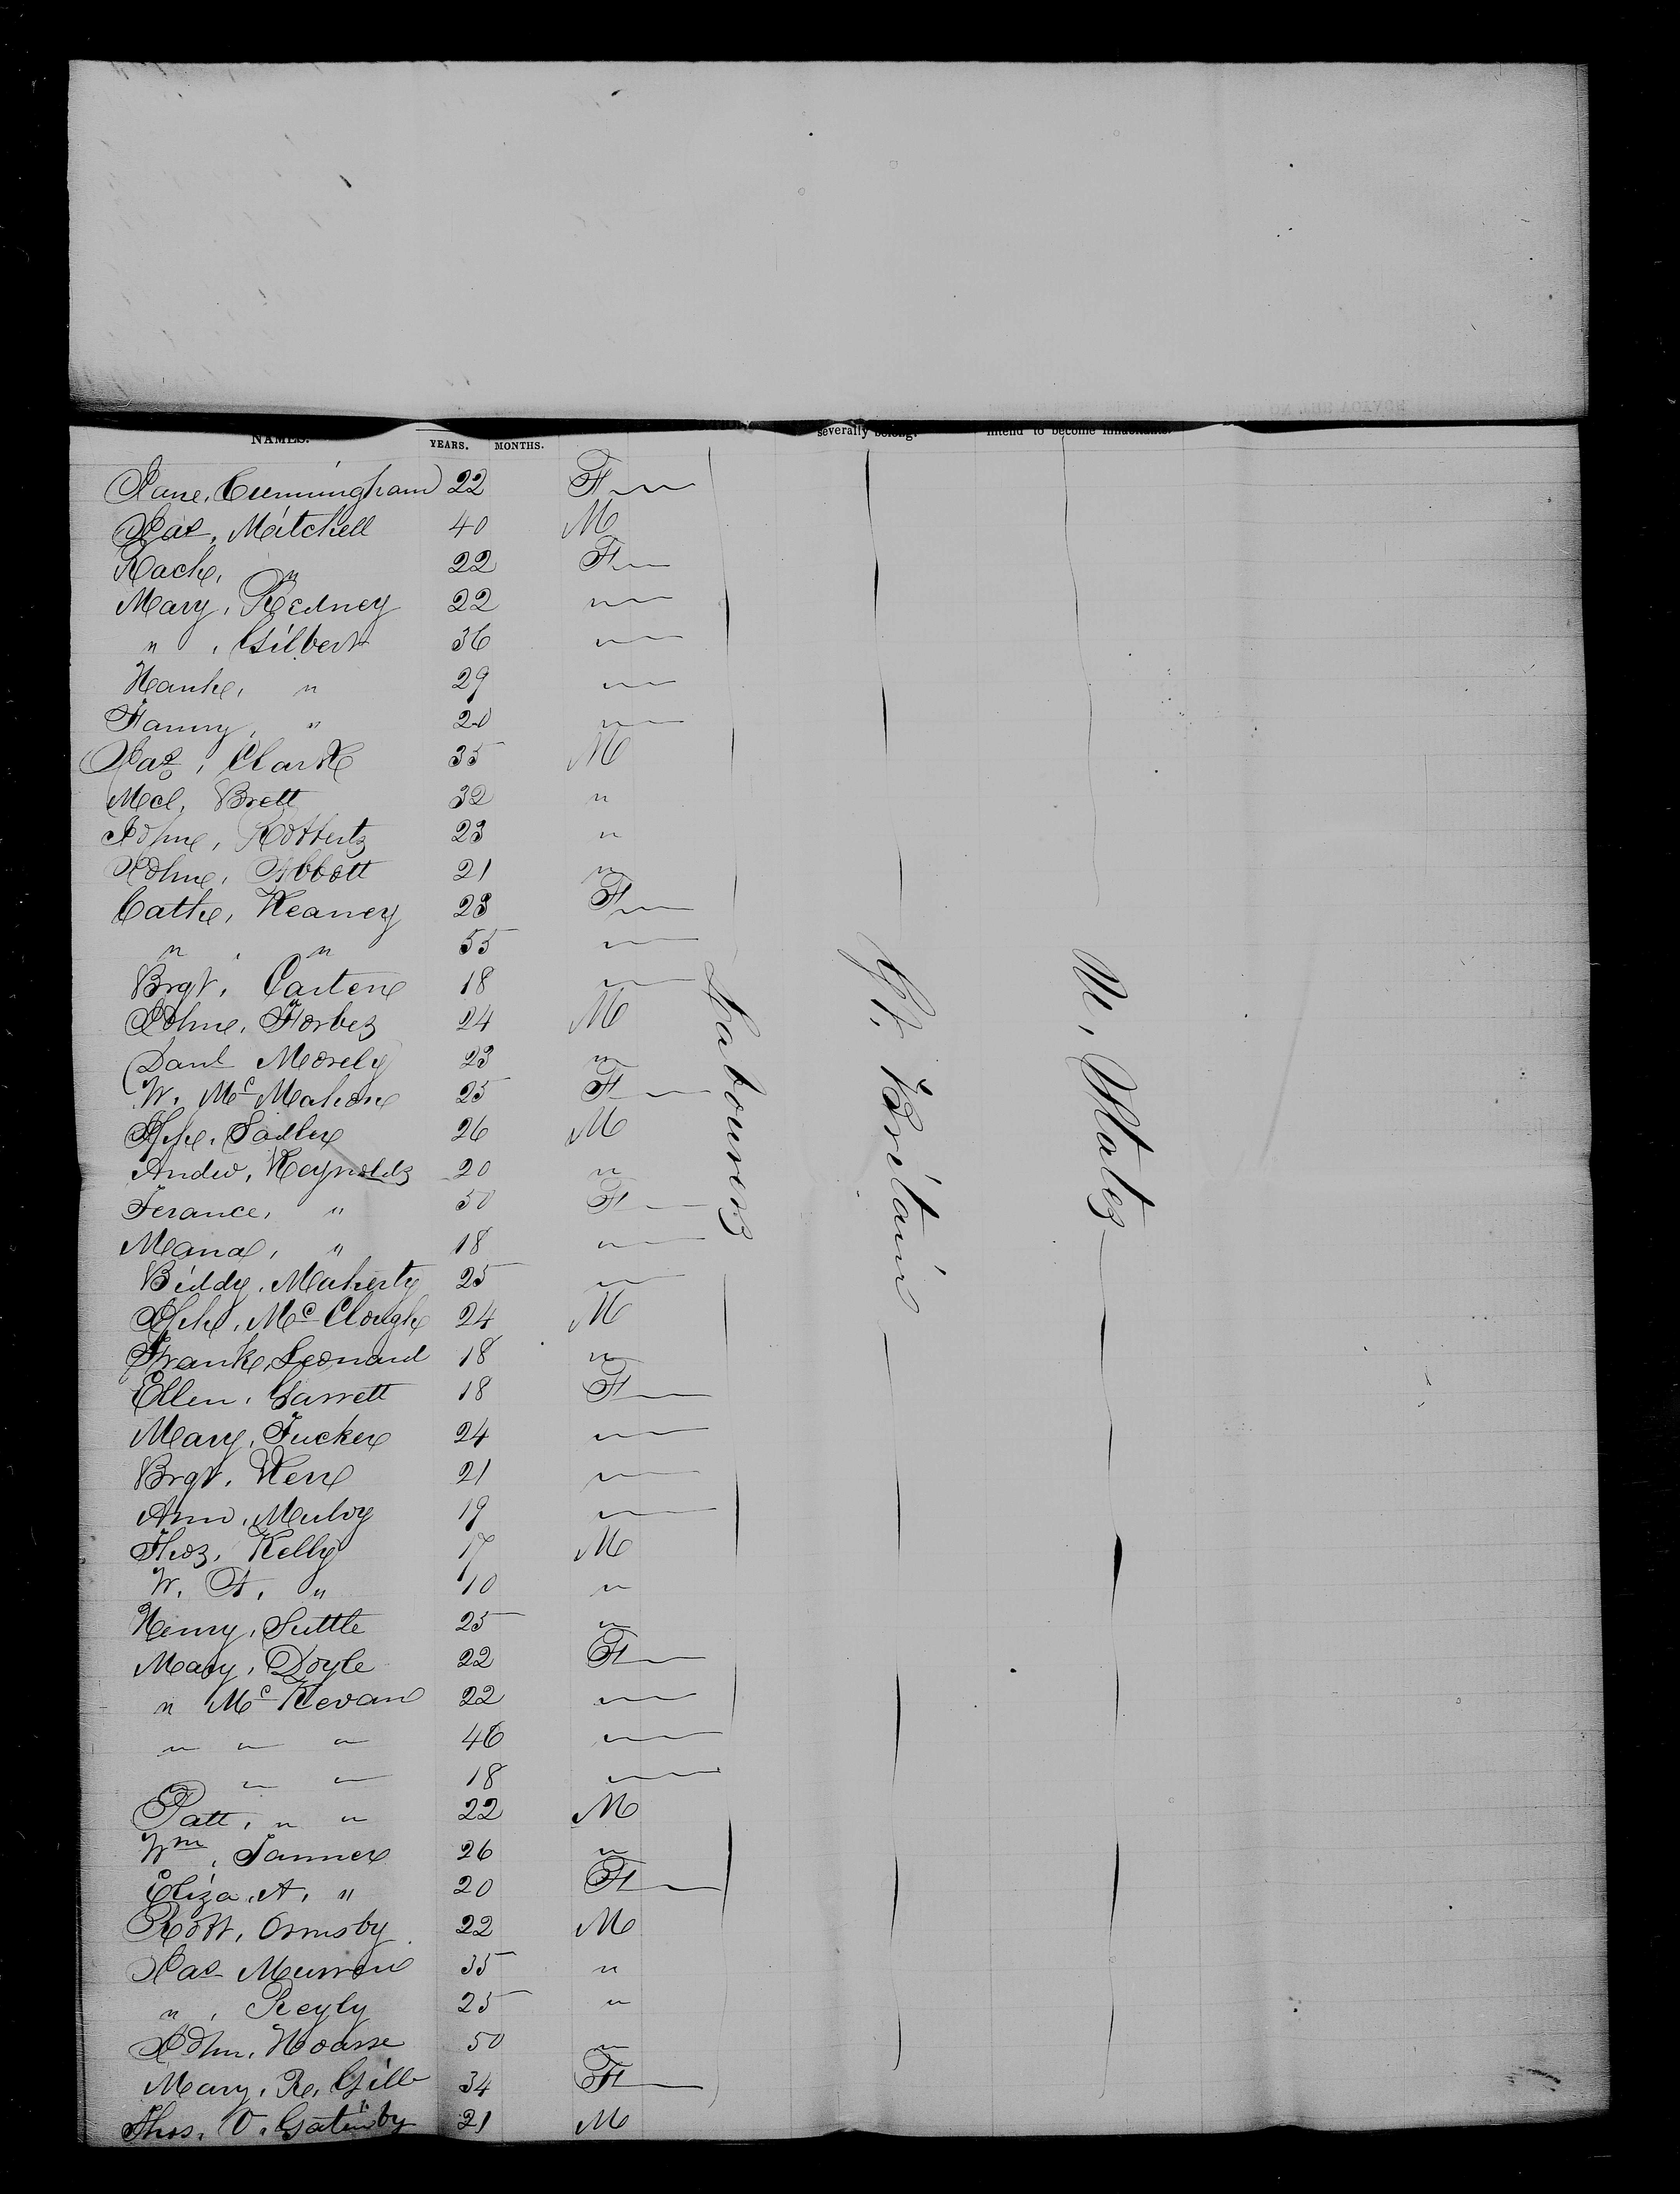 NAMES. YEARS. MONTHS. severally belong. intend to become inhabitants.
Jane, Cunningham 22 F
Jas, Mitchell 40 M
Rach, " 22 F
Mary, Redney 22 "
" , Gilbert 36 "
Hanh, " 29 "
Fanny, " 20 "
Jas, Clark 35 M
Mcl, Brett 32 "
John, Robberts 23 "
John, Abbott 21 "
Cath, Keaney 23 F
" , " 55 "
Brgt, Carten 18 "
John, Forbes 24 M
Danl Morely 23 "
W. Mc Mahon 25 F
Jph, Sadler 26 M
Andw, Reynolds 20 "
Terance, " 50 F
Maria, " 18 "
Biddy, Maherty 25 "
Jph, Mc Clough 24 M
Frank, Leonard 18 "
Ellen, Garrett 18 F
Mary, Tucker 24 "
Brgt, Kerr 21 "
Ann, Mulvy 19 "
Thos, Kelly 17 M
W. A, " 10 "
Henry, Suttle 25 "
Mary, Doyle 22 F
" Mc Kevan 22 "
" " " 46 "
" " 18 "
Patt, " " 22 M
Wm, Tanner 26 "
Eliza, A, " 20 F
Robt, Ormsby 22 M
Jas Murren 35 "
" , Reyly 25 "
John, Hoarse 50 "
Mary, R, Gill 34 F
Thos. V. Gatenby 21 M
Labourers
Gt. Britain
U, States